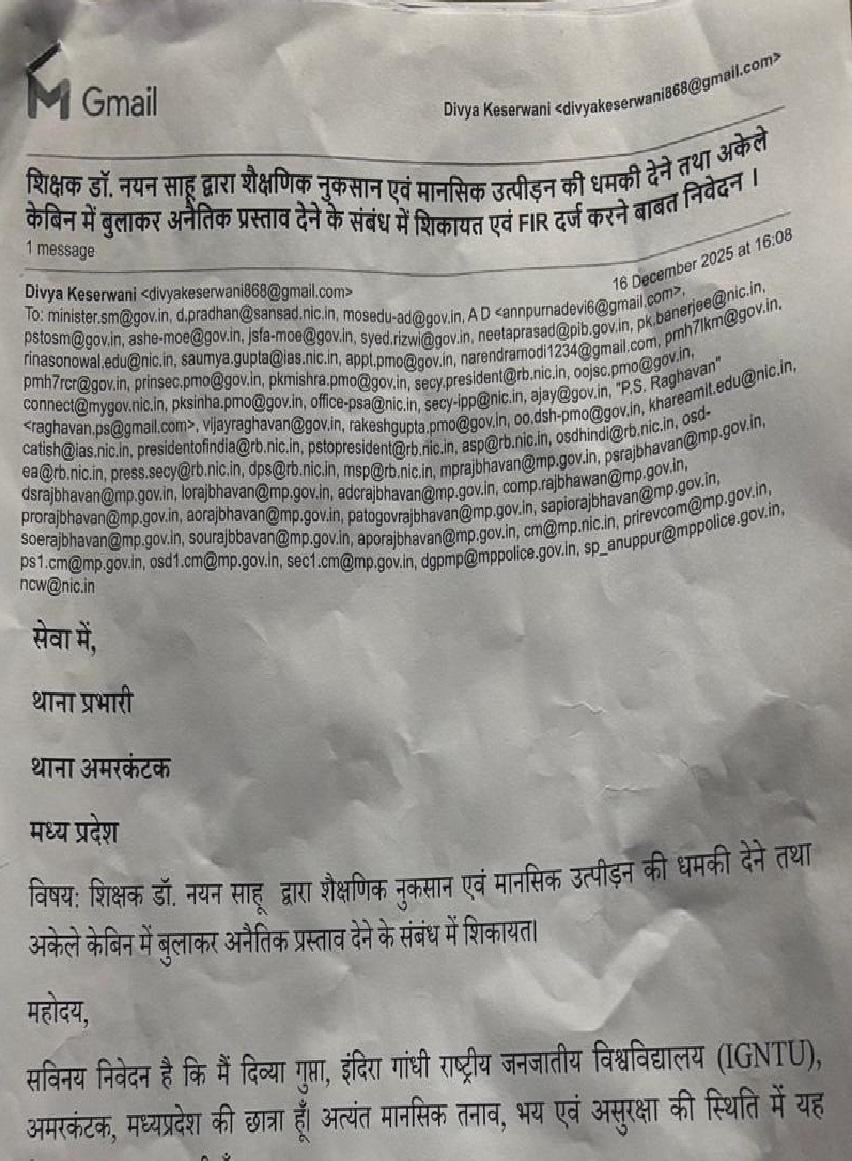 Gmail
Divya Keserwani <divyakeserwani868@gmail.com>
शिक्षक डॉ. नयन साहू द्वारा शैक्षणिक नुकसान एवं मानसिक उत्पीड़न की धमकी देने तथा अकेले
केबिन में बुलाकर अनैतिक प्रस्ताव देने के संबंध में शिकायत एवं FIR दर्ज करने बाबत निवेदन ।
1 message
Divya Keserwani <divyakeserwani868@gmail.com>
16 December 2025 at 16:08
To: minister.sm@gov.in, d.pradhan@sansad.nic.in, mosedu-ad@gov.in, A D <annpurnadevi6@gmail.com>,
pstosm@gov.in, ashe-moe@gov.in, jsfa-moe@gov.in, syed.rizwi@gov.in, neetaprasad@pib.gov.in, pk.banerjee@nic.in,
rinasonowal.edu@nic.in, saumya.gupta@ias.nic.in, appt.pmo@gov.in, narendramodi1234@gmail.com, pmh7lkm@gov.in,
pmh7rcr@gov.in, prinsec.pmo@gov.in, pkmishra.pmo@gov.in, secy.president@rb.nic.in, oojsc.pmo@gov.in,
connect@mygov.nic.in, pksinha.pmo@gov.in, office-psa@nic.in, secy-ipp@nic.in, ajay@gov.in, "P.S. Raghavan"
<raghavan.ps@gmail.com>, vijayraghavan@gov.in, rakeshgupta.pmo@gov.in, oo.dsh-pmo@gov.in, khareamit.edu@nic.in,
catish@ias.nic.in, presidentofindia@rb.nic.in, pstopresident@rb.nic.in, asp@rb.nic.in, osdhindi@rb.nic.in, osd-
ea@rb.nic.in, press.secy@rb.nic.in, dps@rb.nic.in, msp@rb.nic.in, mprajbhavan@mp.gov.in, psrajbhavan@mp.gov.in,
dsrajbhavan@mp.gov.in, lorajbhavan@mp.gov.in, adcrajbhavan@mp.gov.in, comp.rajbhawan@mp.gov.in,
prorajbhavan@mp.gov.in, aorajbhavan@mp.gov.in, patogovrajbhavan@mp.gov.in, sapiorajbhavan@mp.gov.in,
soerajbhavan@mp.gov.in, sourajbbavan@mp.gov.in, aporajbhavan@mp.gov.in, cm@mp.nic.in, prirevcom@mp.gov.in,
ps1.cm@mp.gov.in, osd1.cm@mp.gov.in, sec1.cm@mp.gov.in, dgpmp@mppolice.gov.in, sp_anuppur@mppolice.gov.in,
ncw@nic.in
सेवा में,
थाना प्रभारी
थाना अमरकंटक
मध्य प्रदेश
विषय: शिक्षक डॉ. नयन साहू द्वारा शैक्षणिक नुकसान एवं मानसिक उत्पीड़न की धमकी देने तथा
अकेले केबिन में बुलाकर अनैतिक प्रस्ताव देने के संबंध में शिकायत।
महोदय,
सविनय निवेदन है कि मैं दिव्या गुप्ता, इंदिरा गांधी राष्ट्रीय जनजातीय विश्वविद्यालय (IGNTU),
अमरकंटक, मध्यप्रदेश की छात्रा हूँ। अत्यंत मानसिक तनाव, भय एवं असुरक्षा की स्थिति में यह